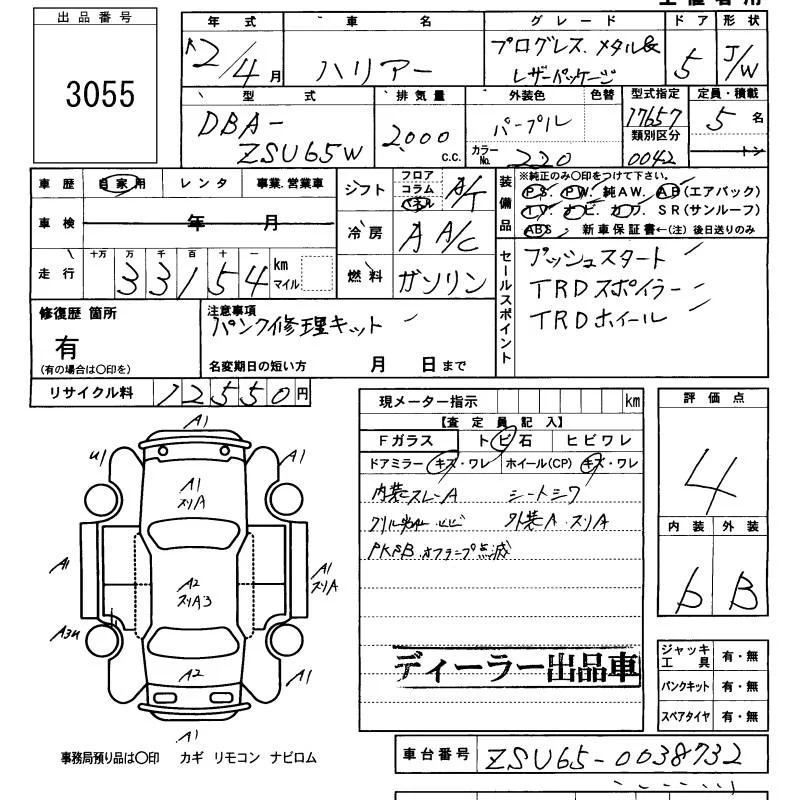 出品番号
3055
年式 車名 グレード ドア 形状
12/4月 ハリアー プログレス.メタル& レザーパッケージ 5 J/W
型式 排気量 外装色 色替 型式指定 定員・積載
DBA-ZSU65W 2,000 c.c. パープル 17657 5名
カラーNo. 220 類別区分 0042 トン
車歴 自家用 レンタ 事業.営業車
シフト フロア コラム パネル A/T
装備品 ※純正のみ〇印をつけて下さい。
PS. PW. 純AW. AB(エアバック)
TV. ナビ. カワ. SR(サンルーフ)
ABS 新車保証書←(注)後日送りのみ
車検 年 月
冷房 A A/C
走行 十万 万 千 百 十 一
33154 km マイル
燃料 ガソリン
セールスポイント
プッシュスタート
TRDスポイラー
TRDホイール
修復歴 箇所
有
(有の場合は〇印を)
注意事項
パンク修理キット
名変期日の短い方 月 日まで
リサイクル料 12550円
現メーター指示 km
【査定員記入】
Fガラス トビ石 ヒビワレ
ドアミラー キズ・ワレ ホイール(CP) キズ・ワレ
内装スレA シートシワ
外装A.スリA
点滅
ディーラー出品車
評価点
4
内装 外装
b B
ジャッキ工具 有・無
パンクキット 有・無
スペアタイヤ 有・無
A1
U1 A1
A1 スリA
A1 A2 スリA3 A1 スリA
A3U
A2 A1
A1
事務局預り品は〇印 カギ リモコン ナビロム
車台番号 ZSU65-0038732